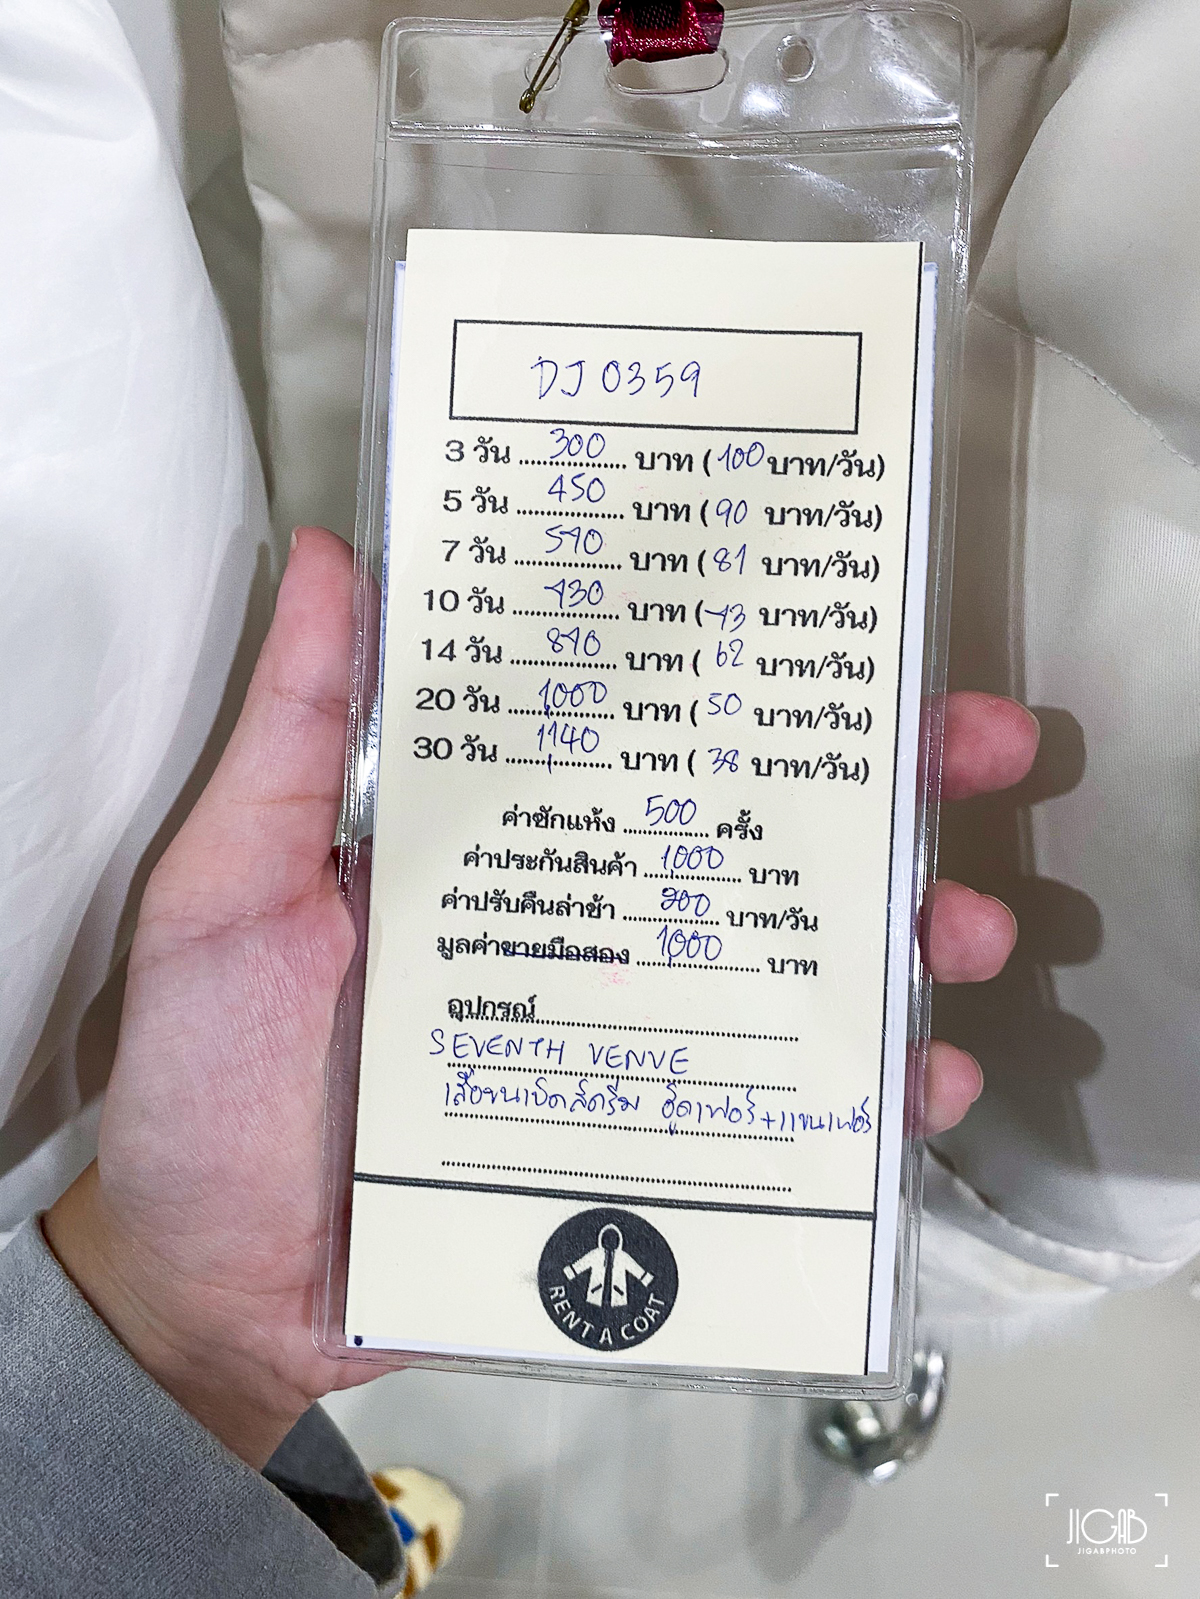 DJ 0359
3 วัน ....300.... บาท (100 บาท/วัน)
5 วัน ....450.... บาท (90 บาท/วัน)
7 วัน ....570.... บาท (81 บาท/วัน)
10 วัน ....730.... บาท (73 บาท/วัน)
14 วัน ....870.... บาท (62 บาท/วัน)
20 วัน ....1,000.... บาท (50 บาท/วัน)
30 วัน ....1,140.... บาท (38 บาท/วัน)
ค่าซักแห้ง ....500.... ครั้ง
ค่าประกันสินค้า ....1,000.... บาท
ค่าปรับคืนล่าช้า ....200.... บาท/วัน
มูลค่าขายมือสอง ....1,000.... บาท
อุปกรณ์
SEVENTH VENUE
เสื้อขนเป็ดสีครีม ฮู้ดเฟอร์+แขนเฟอร์
RENT A COAT
JIGAB
JIGABPHOTO